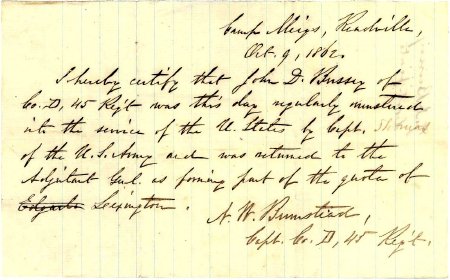 Camp Meigs, Readville,
Oct. 9, 1862.
I hereby certify that John D. Bussey of
Co. D, 45 Reg't was this day regularly mustered
into the service of the U. States by Capt.
of the U. S. Army and was returned to the
Adjutant Genl. as forming part of the quota of
Lexington.
N. W. Bumstead,
Capt. Co. D, 45 Reg't.